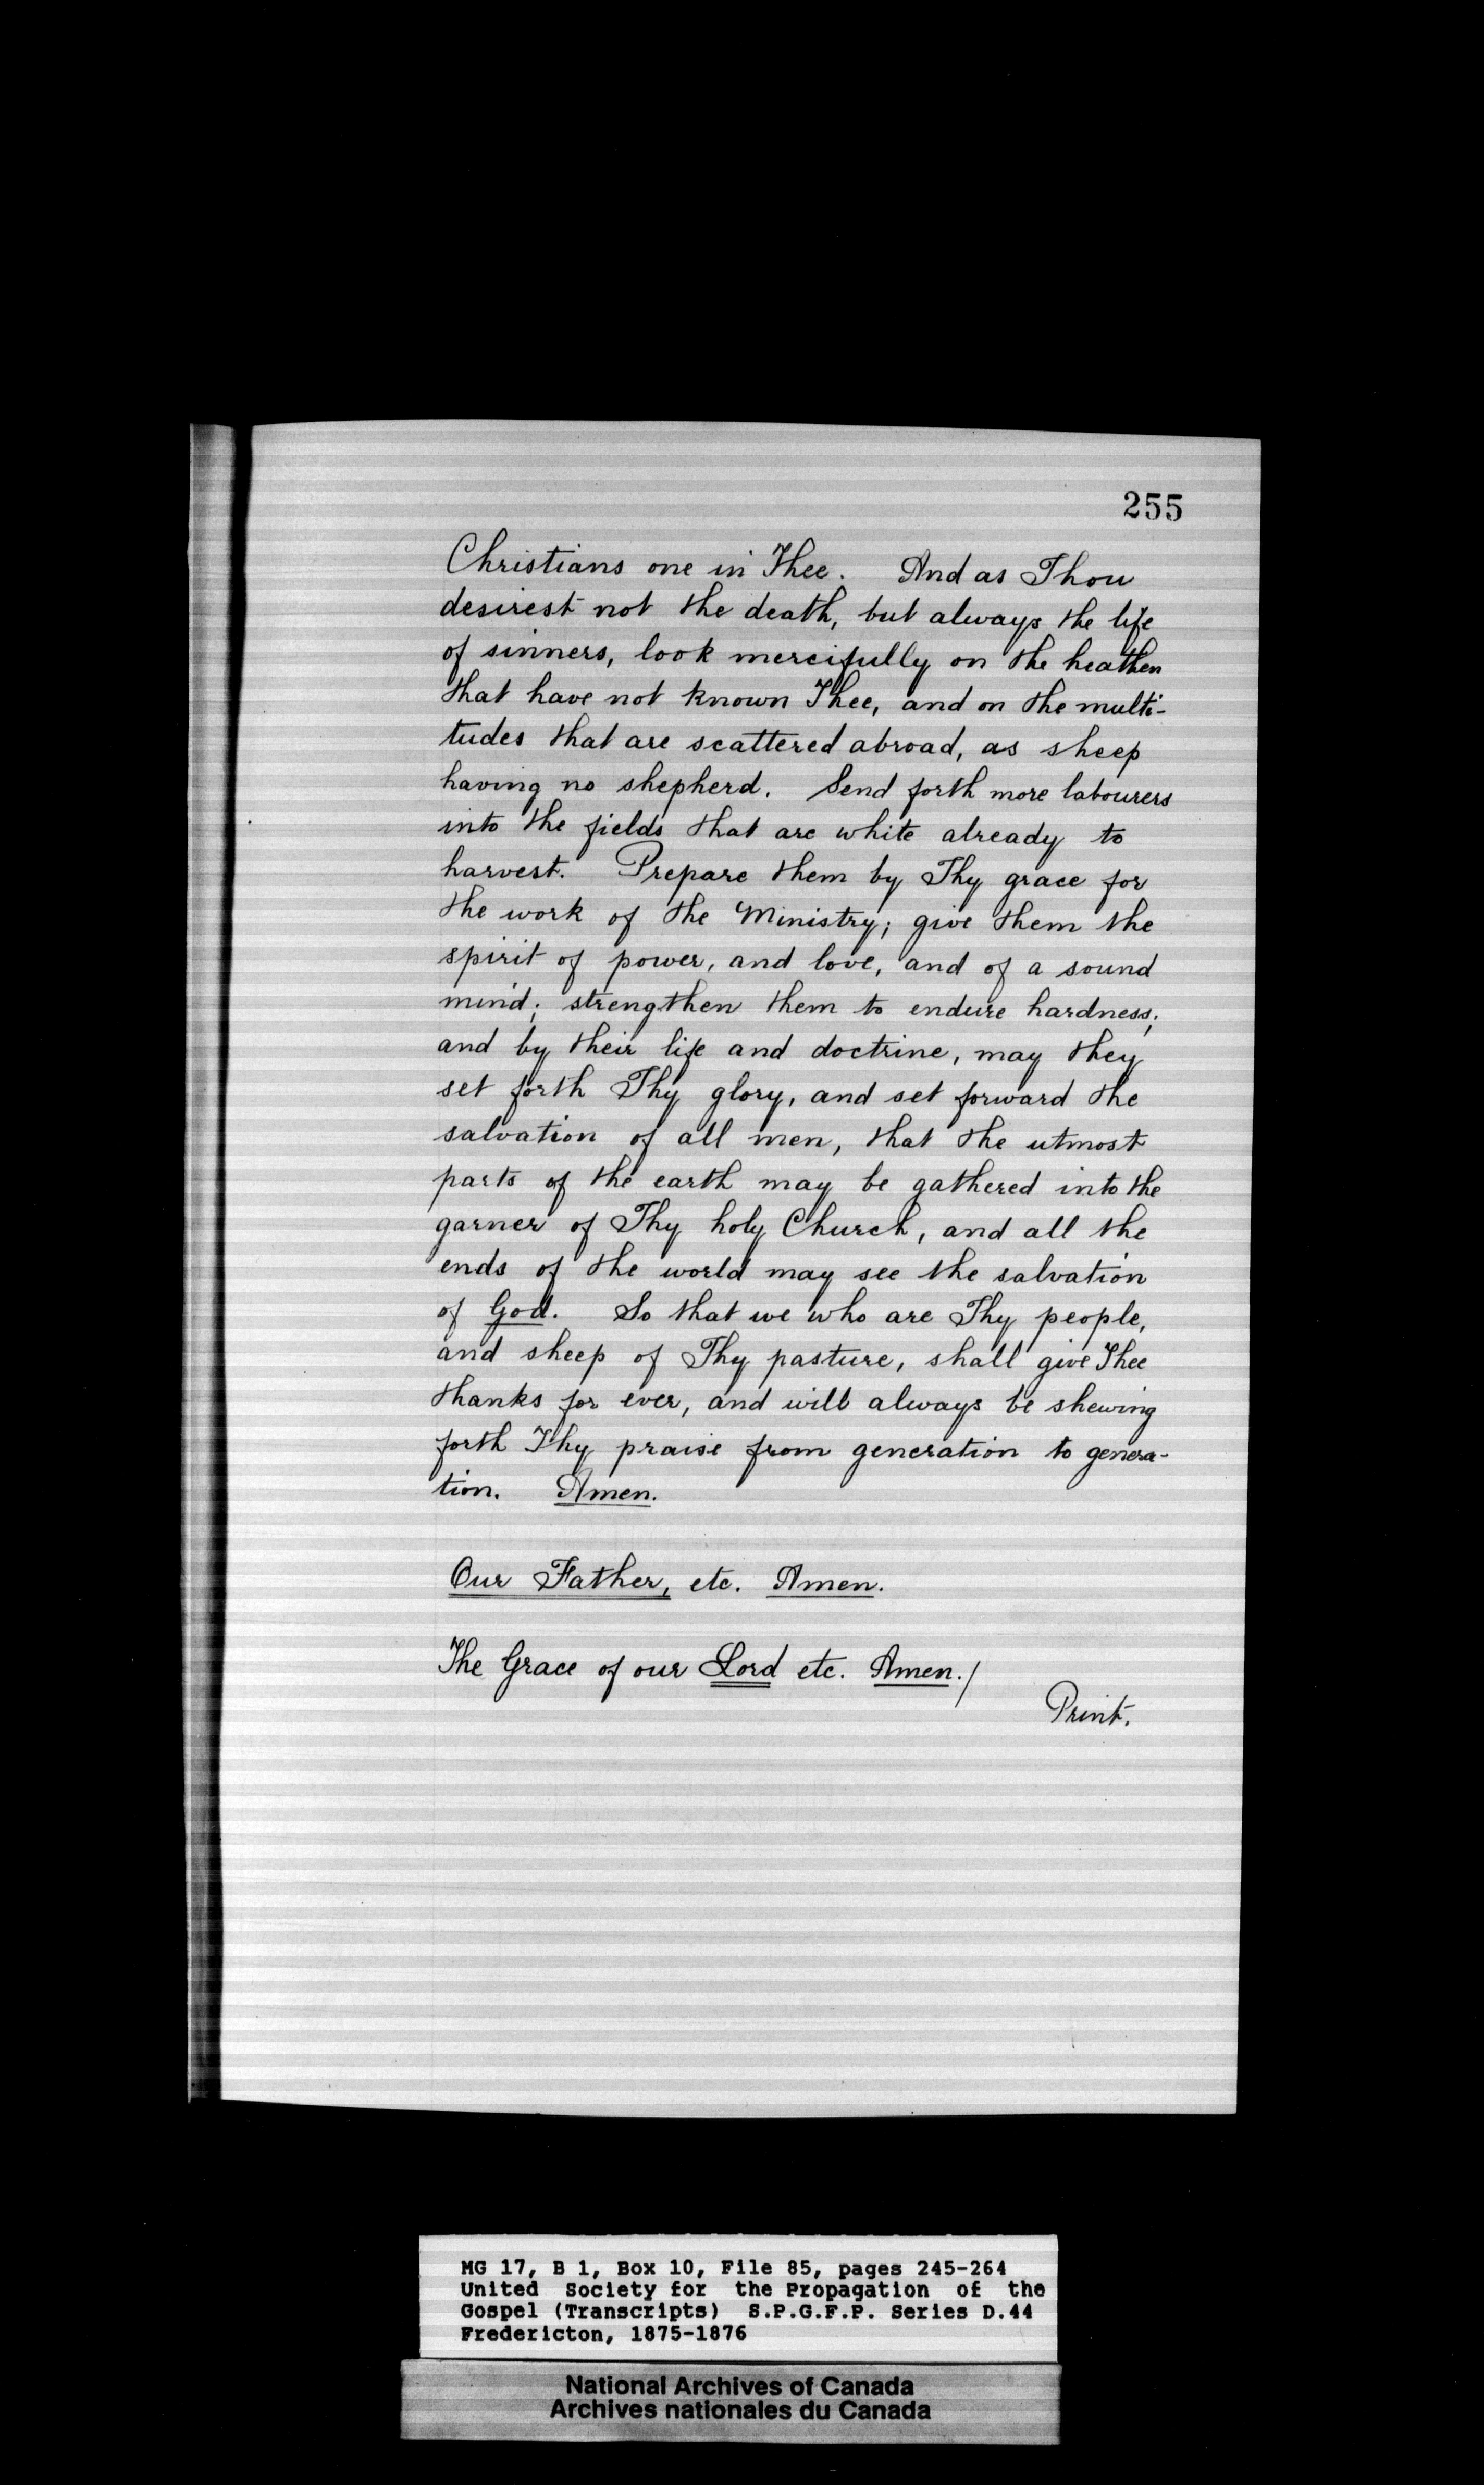 255
Christians one in Thee. And as Thou
desirest not the death, but always the life
of sinners, look mercifully on the heathen
that have not known Thee, and on the multi-
tudes that are scattered abroad, as sheep
having no shepherd. Send forth more labourers
into the fields that are white already to
harvest. Prepare them by Thy grace for
the work of the Ministry; give them the
spirit of power, and love, and of a sound
mind; strengthen them to endure hardness;
and by their life and doctrine, may they
set forth Thy glory, and set forward the
salvation of all men, that the utmost
parts of the earth may be gathered into the
garner of Thy holy Church, and all the
ends of the world may see the salvation
of God. So that we who are Thy people,
and sheep of Thy pasture, shall give Thee
thanks for ever, and will always be shewing
forth Thy praise from generation to genera-
tion. Amen.
Our Father, etc. Amen.
The Grace of our Lord etc. Amen./
Print.
MG 17, B 1, Box 10, File 85, pages 245-264
United Society for the Propagation of the
Gospel (Transcripts) S.P.G.F.P. Series D.44
Fredericton, 1875-1876
National Archives of Canada
Archives nationales du Canada